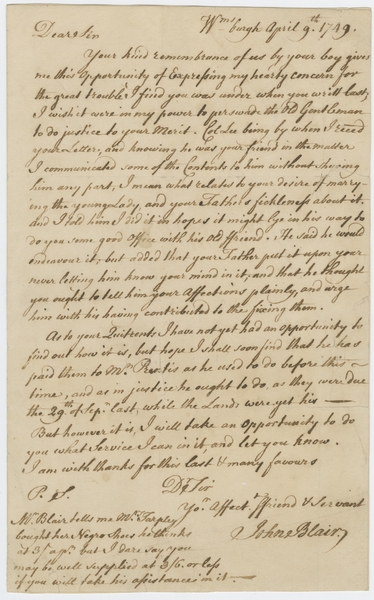 Wmsburgh April 9th. 1749.
Dear Sir
Your kind remembrance of us by your boy gives
me this Opportunity of Expressing my hearty concern for
the great trouble I find you was under when you writ last;
I wish it were in my power to perswade the Old Gentleman
to do justice to your Merit. Col. Lee being by when I reced
your Letter, and knowing he was your friend in the matter
I communicated some of the Contents to him without shewing
him any part, I mean what relates to your desire of marry-
ing the young Lady, and your Father's fickleness about it,
and I told him I did it in hopes it might lye in his way to
do you some good Office with his Old ffriend. He said he would
endeavour it; but added that your Father put it upon your
never letting him know your mind in it, and that he thought
you ought to tell him your Affections plainly, and urge
him with his having contributed to the fixing them.
As to your Quitrents I have not yet had an opportunity to
find out how it is, but hope I shall soon find that he has
paid them to Mr. Prentis as he used to do before this
time, and as in justice he ought to do, as they were due
the 29th of Sepr. last, while the Lands were yet his —
But however it is, I will take an Opportunity to do
you what Service I can in it, and let you know.
I am with thanks for this last & many favours
Dr Sir
Yor. Affect. ffriend & Servant
John Blair
P. S.
Mr. Blair tells me Mr. Tarpley
bought her Negro Shoes he thinks
at 3/ a pr. but I dare say you
may be well Supplied at 3/6. or less
if you will take his assistance in it —